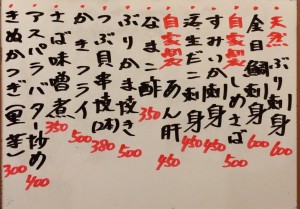 天然ぶり刺身 600
金目鯛刺身 600
自家製しめさば 500
すみいか刺身 450
活生だこ刺身 450
自家製あん肝 450
なまこ酢 350
ぶりかま焼き 500
つぶ貝串焼(2本) 380
かきフライ 500
さば味噌煮 350
アスパラバター炒め 400
きぬかつぎ(里芋) 300